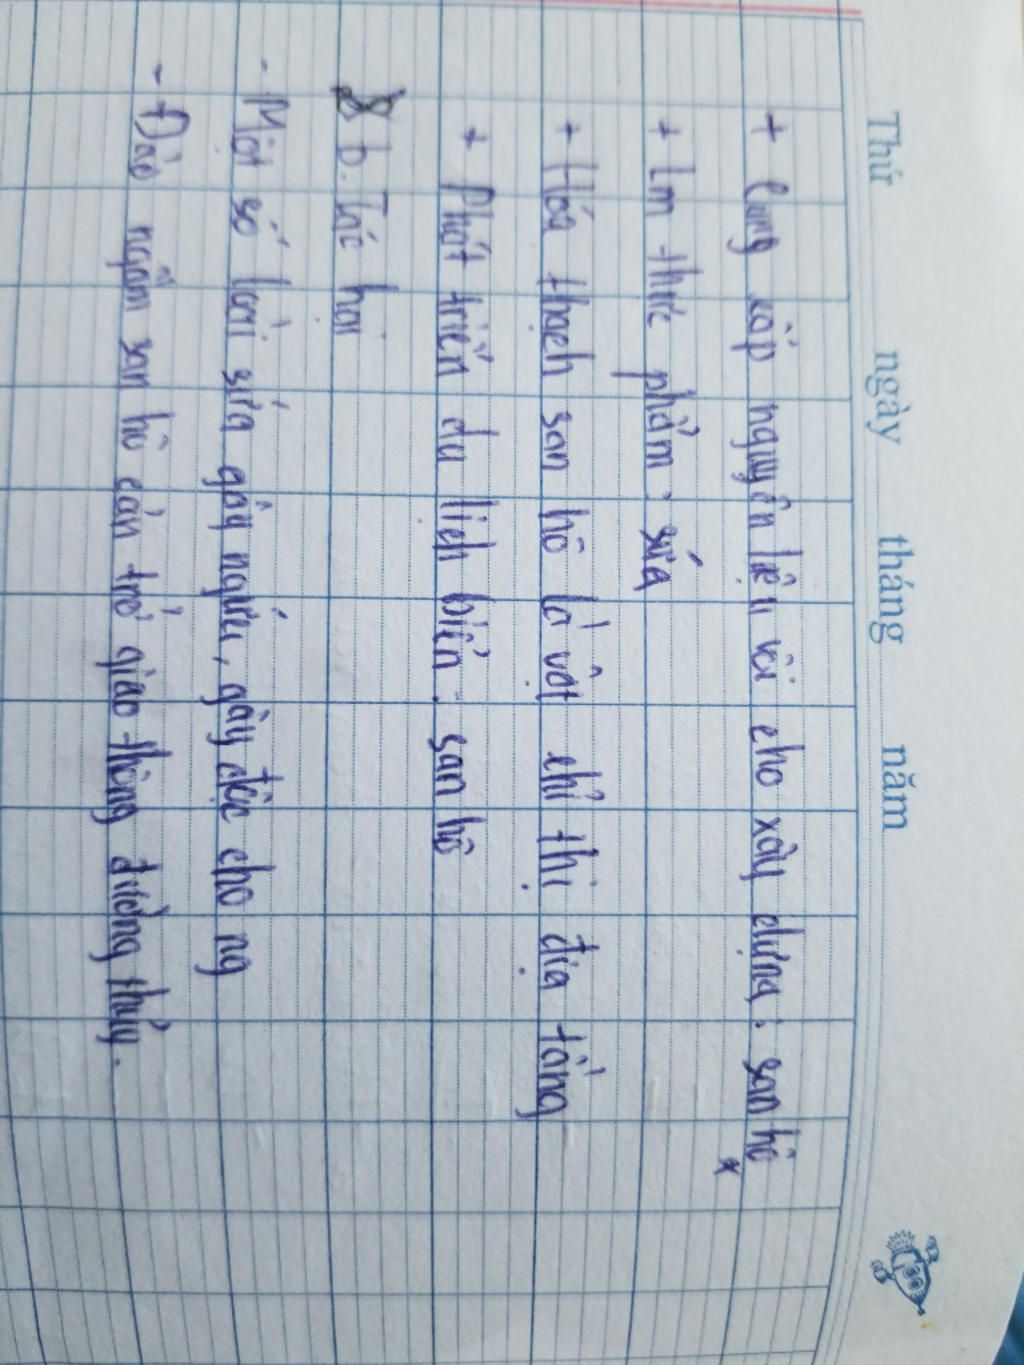 Thứ ngày tháng năm
+ Cung cấp nguyên liệu vôi cho xây dựng : san hô
+ Lm thực phẩm : sứa
+ Hóa thạch san hô là vật chỉ thị địa tầng
+ Phát triển du lịch biển : san hô
b. Tác hại
- Một số loài sứa gây ngứa, gây độc cho ng
- Đảo ngầm san hô cản trở giao thông đường thủy.